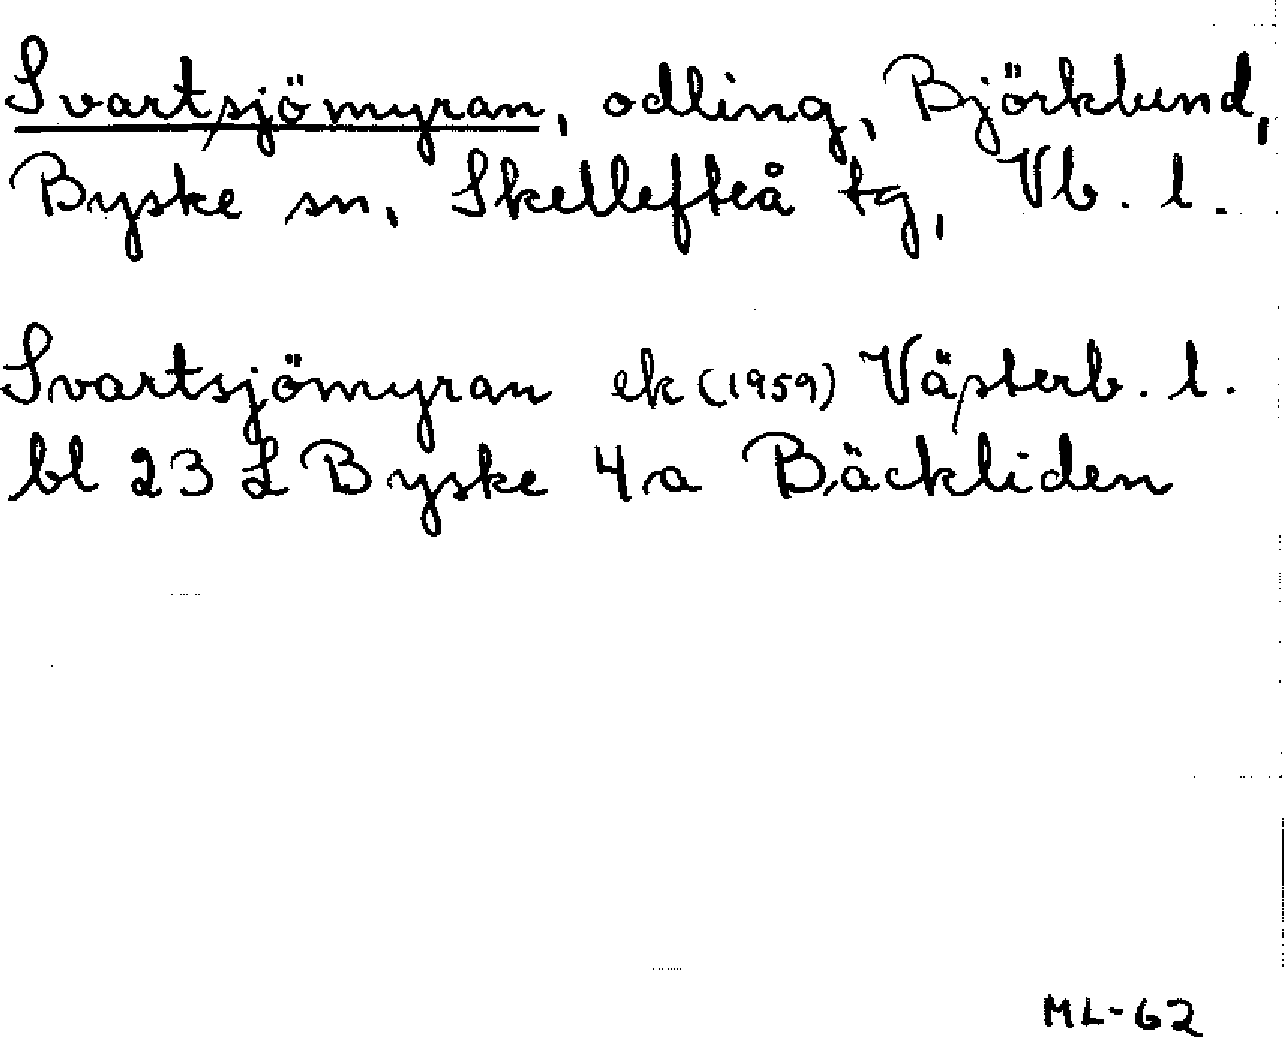 Svartsjömyran, odling, Björklund,
Byske sn, Skellefteå tg, Vb. l.
Svartsjömyran ek (1959) Västerb. l.
bl 23 L Byske 4 a Bäckliden
ML-62